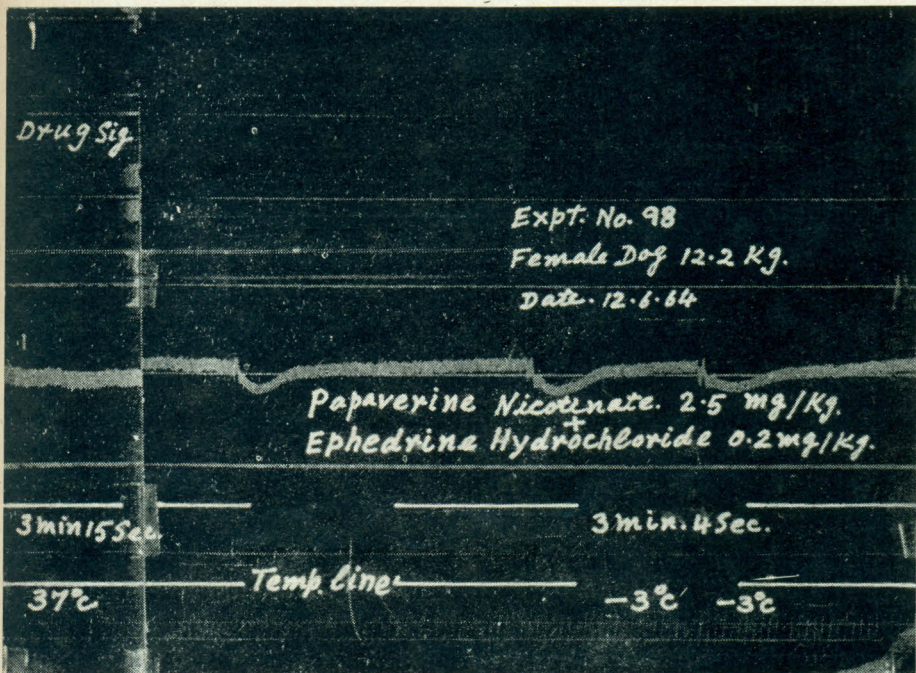 Drug Sig
Expt. No. 98
Female Dog 12.2 Kg.
Date. 12.6.64
Papaverine Nicotinate. 2.5 mg/Kg.
+
Ephedrine Hydrochloride 0.2 mg/Kg.
3 min 15 Sec. 3 min. 4 Sec.
Temp. line
37°c -3°c -3°c